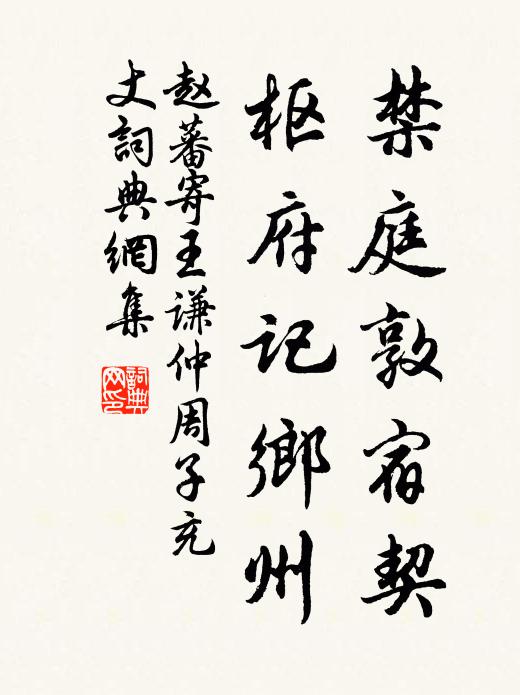 禁庭敦宿契
枢府记鄉州
赵蕃寄王谦仲周子充
丈詞典網集
詞典网印